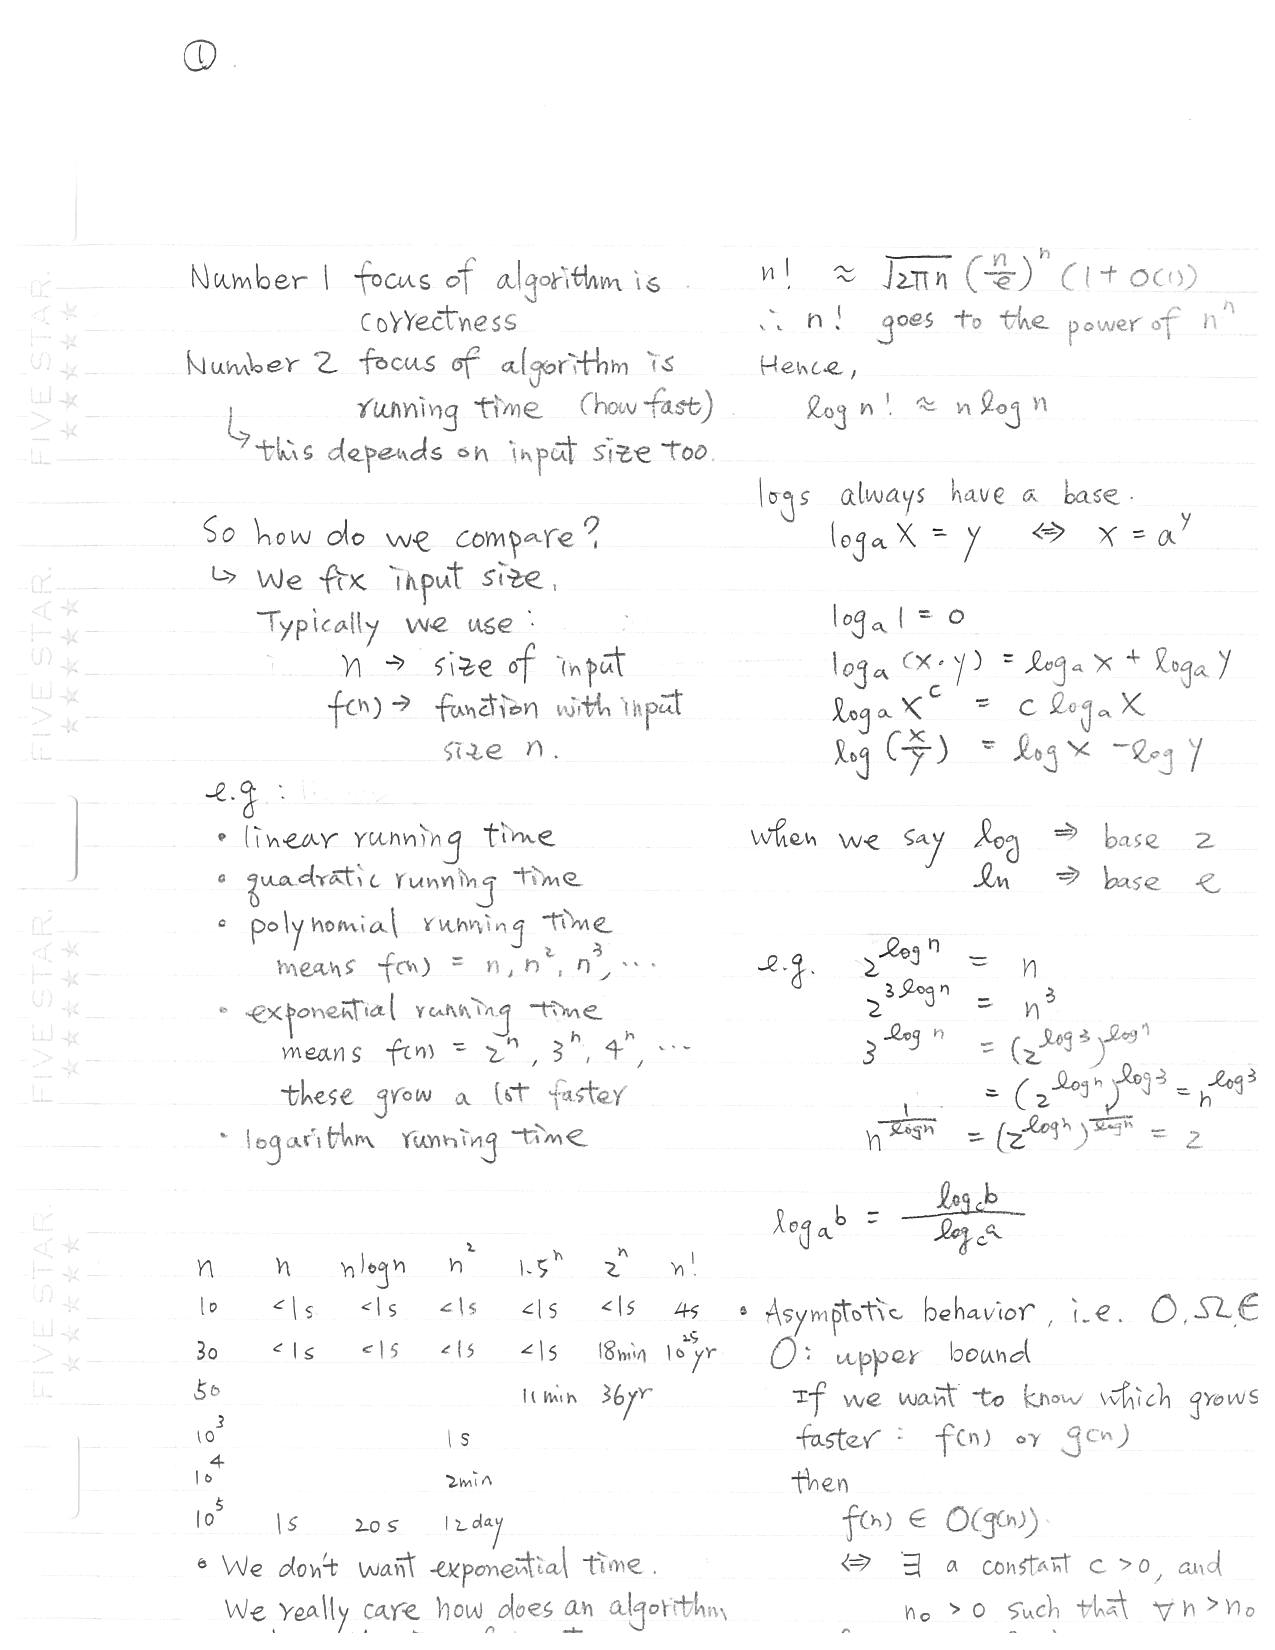 ①
Number 1 focus of algorithm is
correctness
Number 2 focus of algorithm is
running time (how fast)
↳ this depends on input size too.
So how do we compare?
↳ We fix input size.
Typically we use:
n → size of input
f(n) → function with input
size n.
e.g :
• linear running time
• quadratic running time
• polynomial running time
means f(n) = n, n², n³, ...
• exponential running time
means f(n) = 2ⁿ, 3ⁿ, 4ⁿ, ...
these grow a lot faster
• logarithm running time
n n nlogn n² 1.5ⁿ 2ⁿ n!
10 <1s <1s <1s <1s <1s 4s
30 <1s <1s <1s <1s 18min 10²⁵yr
50 11min 36yr
10³ 1s
10⁴ 2min
10⁵ 1s 20s 12day
• We don't want exponential time.
We really care how does an algorithm
n! ≈ √(2πn) (n/e)ⁿ (1 + O(1))
∴ n! goes to the power of nⁿ
Hence,
log n! ≈ n log n
logs always have a base.
logₐ x = y ⇔ x = a^y
logₐ 1 = 0
logₐ (x·y) = logₐ x + logₐ y
logₐ x^c = c logₐ x
log (x/y) = log x - log y
when we say log ⇒ base 2
ln ⇒ base e
e.g. 2^(log n) = n
2^(3 log n) = n³
3^(log n) = (2^(log 3))^(log n)
= (2^(log n))^(log 3) = n^(log 3)
n^(1/log n) = (2^(log n))^(1/log n) = 2
logₐ b = log_c b / log_c a
• Asymptotic behavior, i.e. O, Ω, ∈
O: upper bound
If we want to know which grows
faster : f(n) or g(n)
then
f(n) ∈ O(g(n)).
⇔ ∃ a constant c > 0, and
n₀ > 0 such that ∀ n > n₀
FIVE STAR.
FIVE STAR.
FIVE STAR.
FIVE STAR.